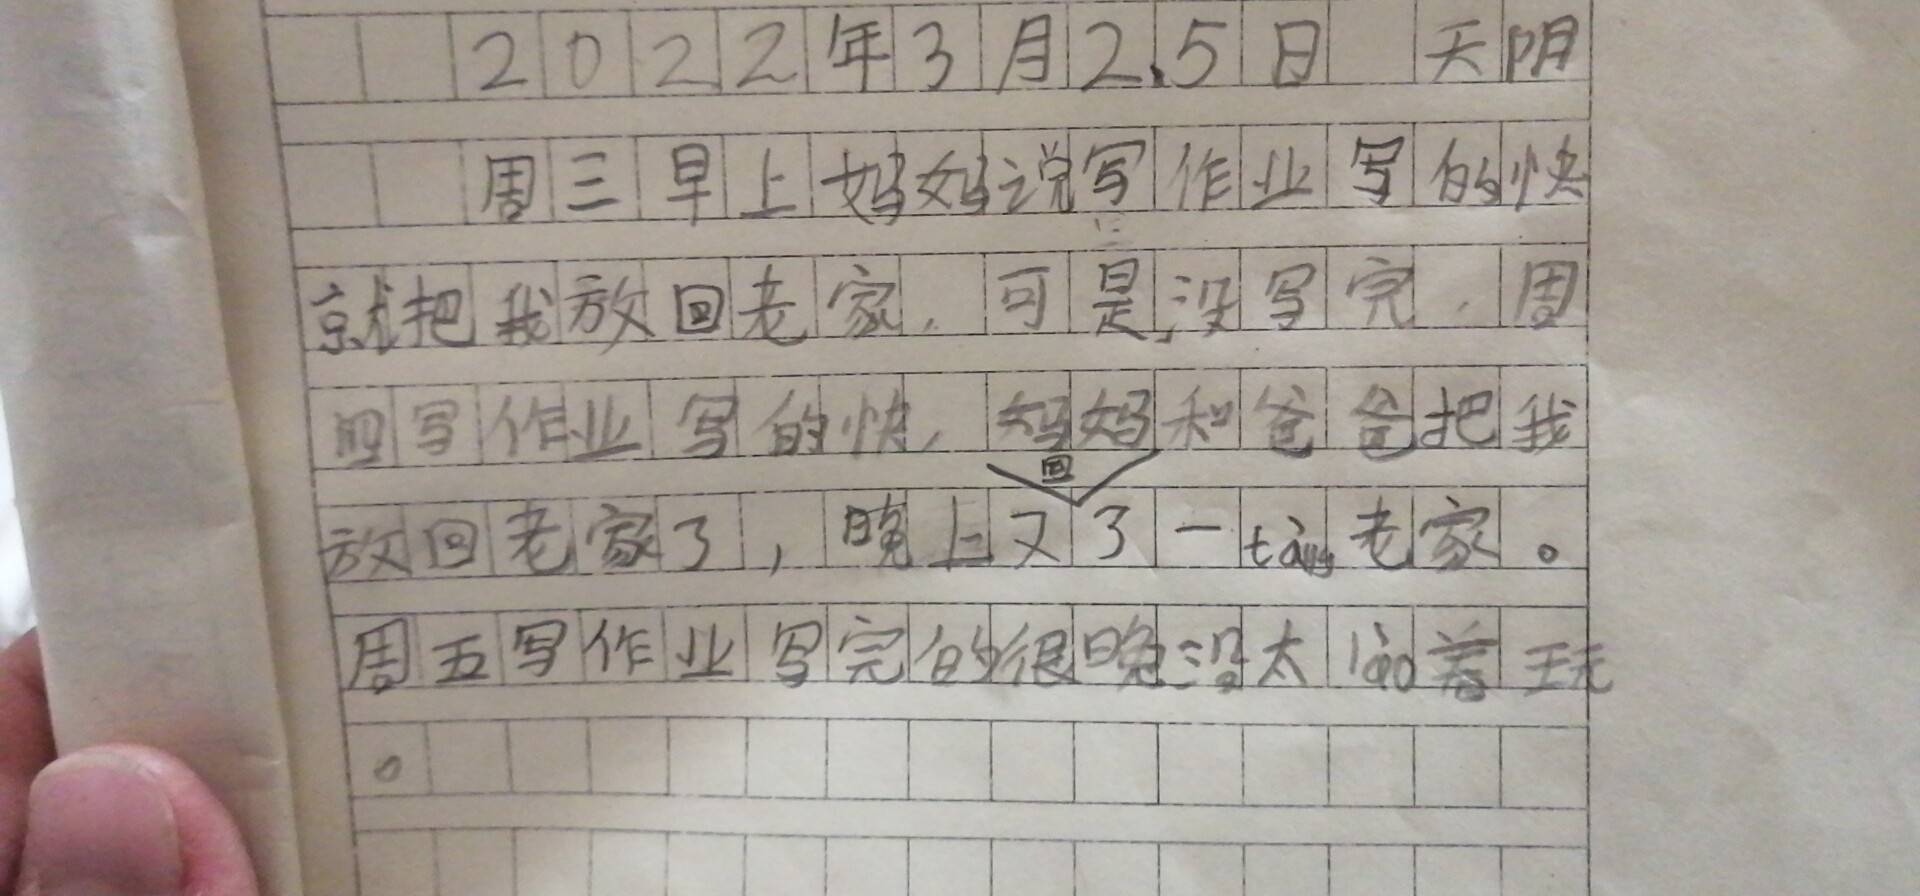 2022年3月25日 天阴
周三早上妈妈说写作业写的快
就把我放回老家，可是没写完，周
四写作业写的快，妈妈和爸爸把我
放回老家了，晚上又回了一tàng老家。
周五写作业写完的很晚没太lāo着玩
。